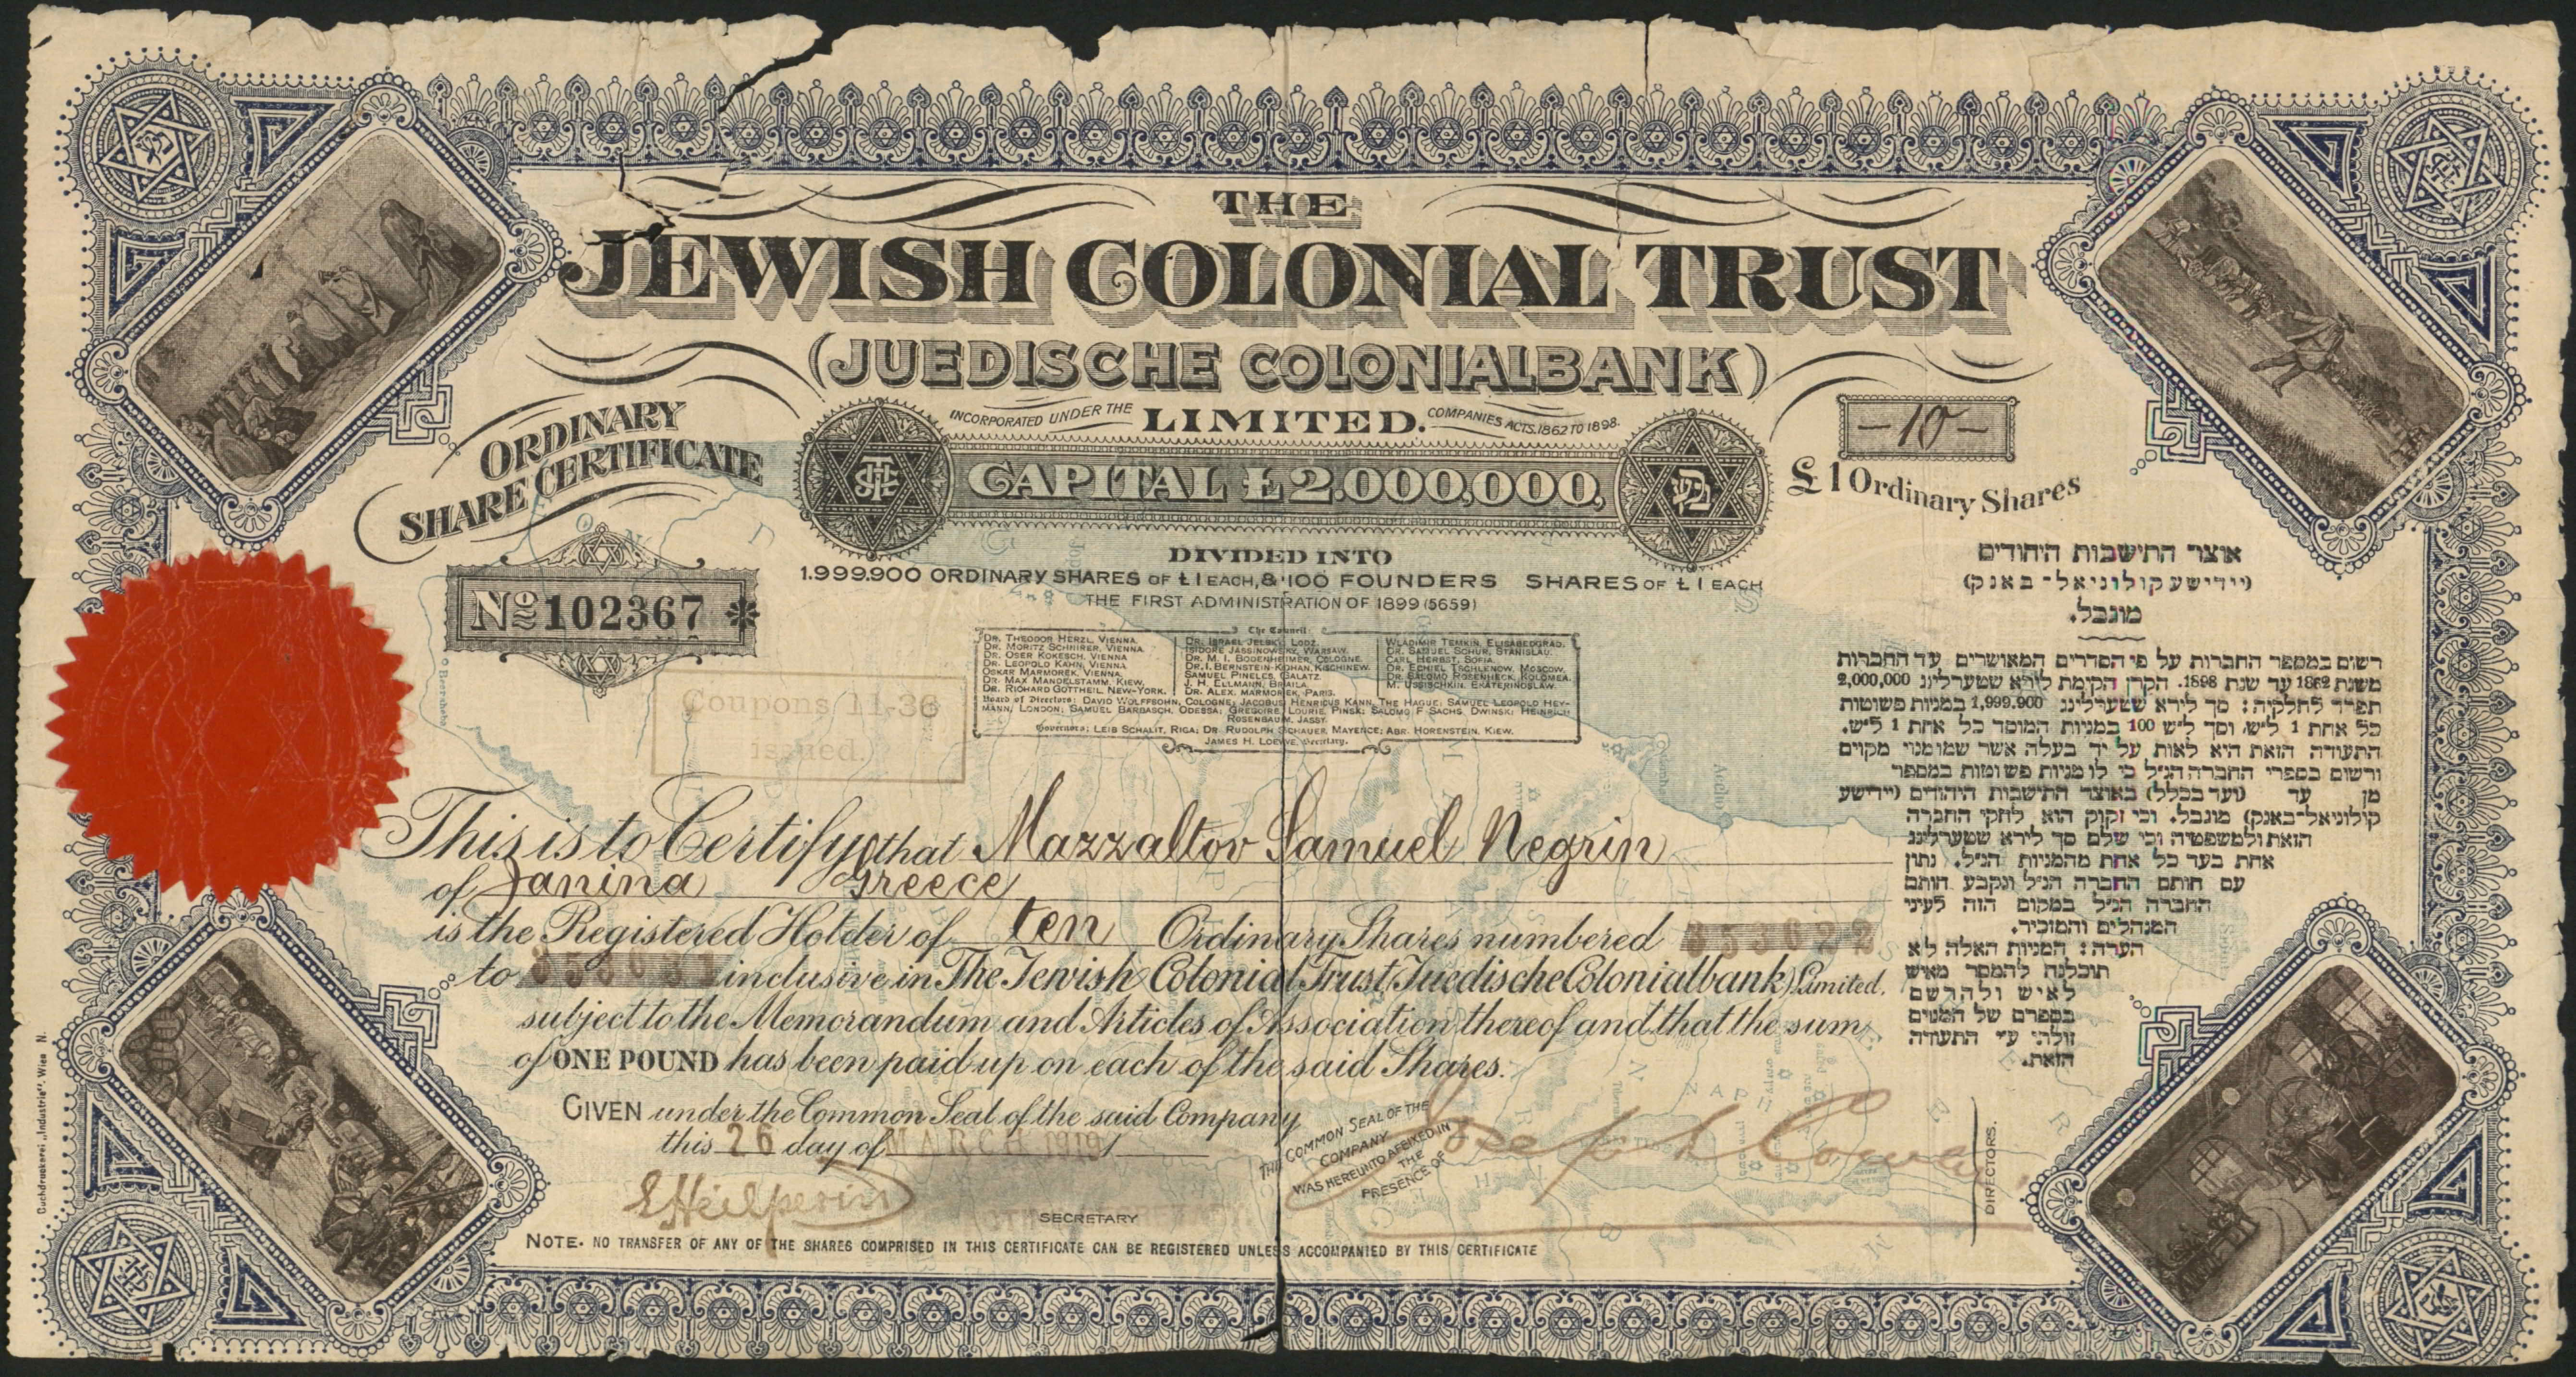 THE
JEWISH COLONIAL TRUST
(JUEDISCHE COLONIALBANK)
INCORPORATED UNDER THE LIMITED. COMPANIES ACTS. 1862 TO 1898.
ORDINARY
SHARE CERTIFICATE
CAPITAL £2.000,000,
-10-
£1 Ordinary Shares
DIVIDED INTO
1.999.900 ORDINARY SHARES OF £1 EACH, & 100 FOUNDERS SHARES OF £1 EACH
THE FIRST ADMINISTRATION OF 1899 (5659)
No 102367 *
The Council:
DR. THEODOR HERZL, VIENNA.
DR. MORITZ SCHNIRER, VIENNA
DR. OSER KOKESCH, VIENNA
DR. LEOPOLD KAHN, VIENNA
OSKAR MARMOREK, VIENNA.
DR. MAX MANDELSTAMM, KIEW.
DR. RICHARD GOTTHEIL, NEW-YORK.
DR. ISRAEL JELSKY, LODZ.
ISIDORE JASSINOWSKY, WARSAW.
DR. M. I. BODENHEIMER, COLOGNE.
DR. I. BERNSTEIN-KOHAN, KISCHINEW.
SAMUEL PINELES, GALATZ.
J. H. ELLMANN, BRAILA.
DR. ALEX. MARMOREK, PARIS.
WLADIMIR TEMKIN, ELISABEDGRAD.
DR. SAMUEL SCHUR, STANISLAU.
CARL HERBST, SOFIA.
DR. ECHIEL TSCHLENOW, MOSCOW.
DR. SALOMO ROSENHECK, KOLOMEA.
M. USSISCHKIN, EKATERINOSLAW.
Board of Directors: DAVID WOLFFSOHN, COLOGNE; JACOBUS HENRICUS KANN, THE HAGUE; SAMUEL LEOPOLD HEY-
MANN, LONDON; SAMUEL BARBASCH, ODESSA; GREGOIRE LOURIE, PINSK; SALOMO F. SACHS, DWINSK; HEINRICH
ROSENBAUM, JASSY.
Governors: LEIB SCHALIT, RIGA; DR. RUDOLPH SCHAUER, MAYENCE; ABR. HORENSTEIN, KIEW.
JAMES H. LOEWE, Secretary.
Coupons 11-36
issued.
אוצר התישבות היהודים
(יידישע קולוניאל-באנק)
מוגבל.
רשום במספר החברות על פי הסדרים המאושרים עד החברות
משנת 1862 עד שנת 1898. הקרן הקימת לירא שטערלינג 2,000,000
תפרד לחלקיה: סך לירא שטערלינג 1,999.900 במניות פשוטות
כל אחת 1 ל״ש, וסך ל״ש 100 במניות המוסד כל אחת 1 ל״ש.
התעודה הזאת היא לאות על יד בעלה אשר שמו מנוי מקוים
ורשום בספרי החברה הנ״ל כי לו מניות פשוטות במספר
מן עד (ועד בכלל) באוצר התישבות היהודים (יידישע
קולוניאל-באנק) מוגבל. וכי זקוק הוא לחקי החברה
הזאת ולמשפטיה וכי שלם סך לירא שטערלינג
אחת בעד כל אחת מהמניות הנ״ל. נתון
עם חותם החברה הנ״ל ונקבע חותם
החברה הנ״ל במקום הזה לעיני
המנהלים והמזכיר.
הערה: המניות האלה לא
תוכלנה להמסר מאיש
לאיש ולהרשם
בספרם של המנוים
זולתי ע״י התעודה
הזאת.
This is to Certify that Mazzaltov Samuel Negrin
of Janina Greece
is the Registered Holder of ten Ordinary Shares numbered
to inclusive in The Jewish Colonial Trust (Juedische Colonialbank) Limited.
subject to the Memorandum and Articles of Association thereof and that the sum
of ONE POUND has been paid up on each of the said Shares.
GIVEN under the Common Seal of the said Company
this 26 day of MARCH 1919
THE COMMON SEAL OF THE
COMPANY
WAS HEREUNTO AFFIXED IN
THE
PRESENCE OF
Joseph Cowen
DIRECTORS.
S Heilperin
SECRETARY
NOTE. NO TRANSFER OF ANY OF THE SHARES COMPRISED IN THIS CERTIFICATE CAN BE REGISTERED UNLESS ACCOMPANIED BY THIS CERTIFICATE
Buchdruckerei „Industrie“, Wien